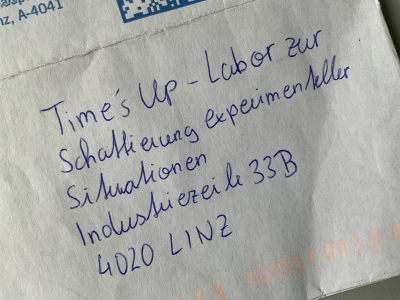 nz, A-4041
Time's Up - Labor zur
Schattierung experimenteller
Situationen
Industriezeile 33B
4020 LINZ